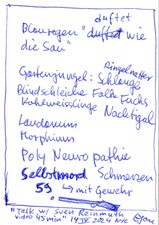 duftet
Blauregen "duftet wie
die Sau"
Ringelnatter
Gartenjungel: Schlange
Blindschleiche Falke Fuchs
Kohlmeisslinge Nachtigal
Laudanum
Morphium
Poly Neuro pathie
Selbstmord Schmerzen
59 → mit Gewehr
"Talk w/ Sven Reinmuth
video 45 min" 14 2024 NYC